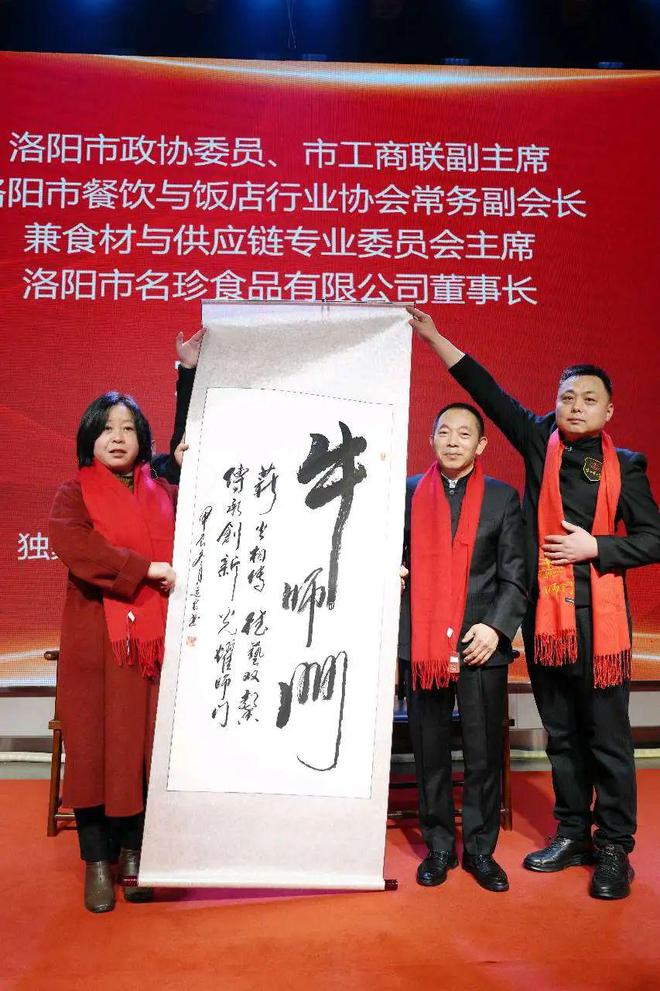 洛阳市政协委员、市工商联副主席
洛阳市餐饮与饭店行业协会常务副会长
兼食材与供应链专业委员会主席
洛阳市名珍食品有限公司董事长
独
牛师門
薪火相傳 德藝双馨
傳承創新 光耀师门
甲辰
师门